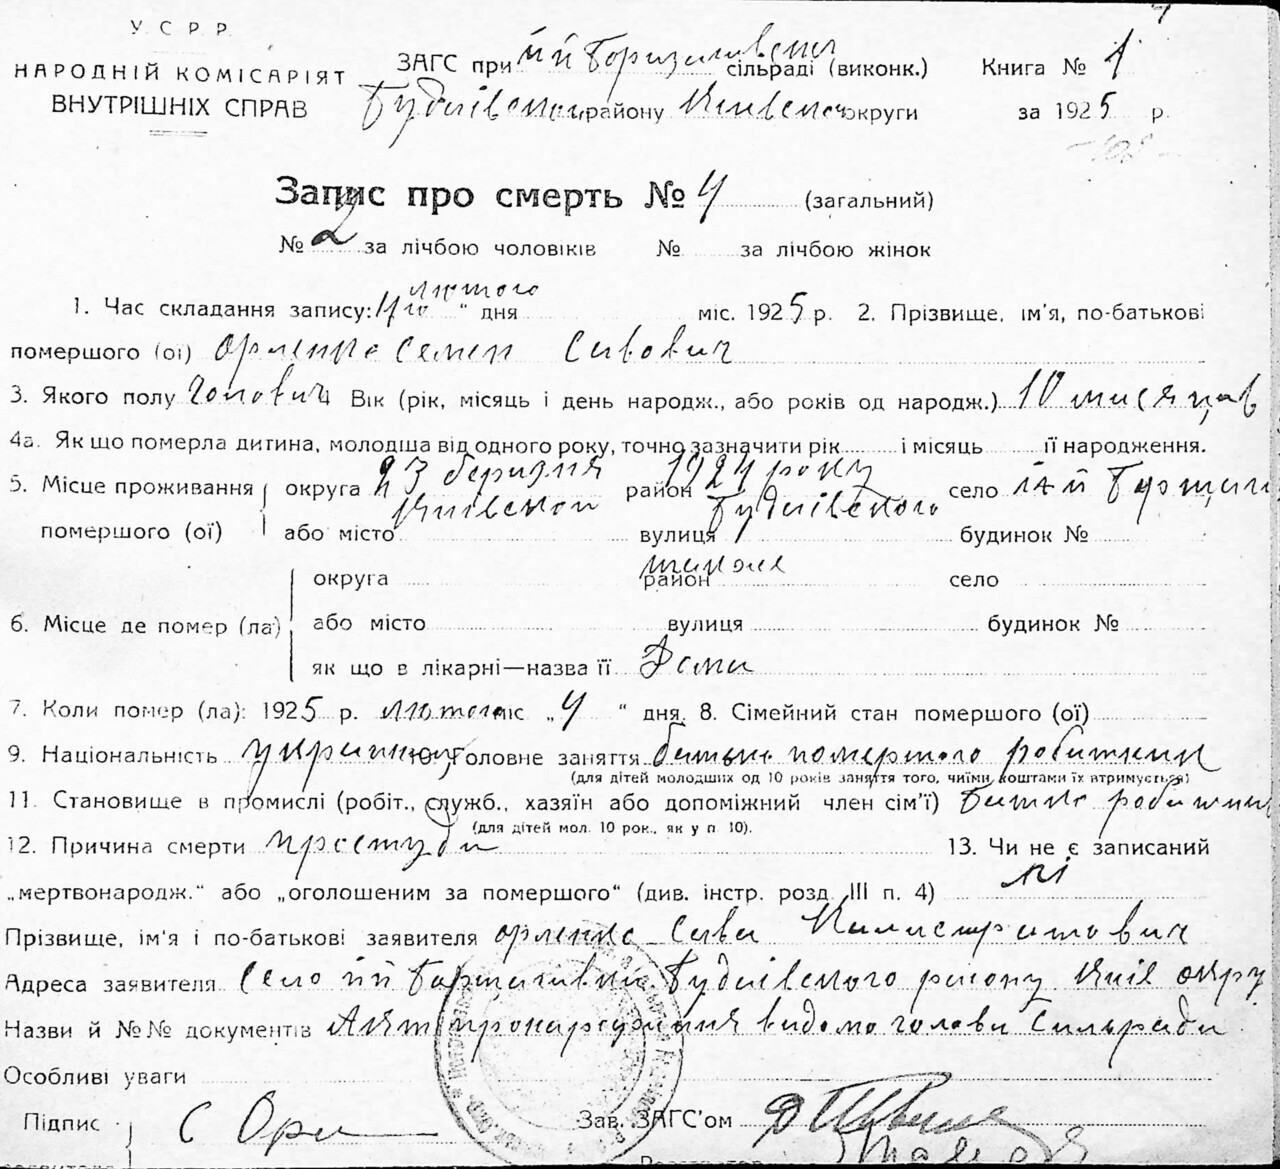 У. С. Р. Р.
НАРОДНІЙ КОМІСАРІЯТ
ВНУТРІШНІХ СПРАВ
ЗАГС при сільраді (виконк.)
району округи
Книга № 1
за 1925 р.
Запис про смерть № 4 (загальний)
№ 2 за лічбою чоловіків № за лічбою жінок
1. Час складання запису: 4го лютого " дня міс. 1925 р. 2. Прізвище, ім'я, по-батькові
помершого (ої) Орленко Семен Савович
3. Якого полу Чоловіч Вік (рік, місяць і день народж., або років од народж.) 10 мисяцав
4а. Як що померла дитина, молодша від одного року, точно зазначити рік і місяць її народження.
23 беризня 1924 року
5. Місце проживання помершого (ої) округа район село
або місто вулиця будинок №
6. Місце де помер (ла) округа район село
або місто вулиця будинок №
як що в лікарні—назва її Дома
7. Коли помер (ла): 1925 р. лютого міс „4 " дня. 8. Сімейний стан помершого (ої)
9. Національність 10. Головне заняття батько помершого робитник
(для дітей молодших од 10 років заняття того, чиїми коштами їх втримується)
11. Становище в промислі (робіт., служб., хазяїн або допоміжний член сім'ї) батько робитник
(для дітей мол. 10 рок., як у п. 10).
12. Причина смерти простуда 13. Чи не є записаний
„мертвонародж." або „оголошеним за помершого" (див. інстр. розд. III п. 4) ні
Прізвище, ім'я і по-батькові заявителя Орленко Сава Калистратович
Адреса заявителя Село району Київ окру
Назви й №№ документів Акт голови Сильради
Особливі уваги
Підпис С Орл Зав. ЗАГС'ом